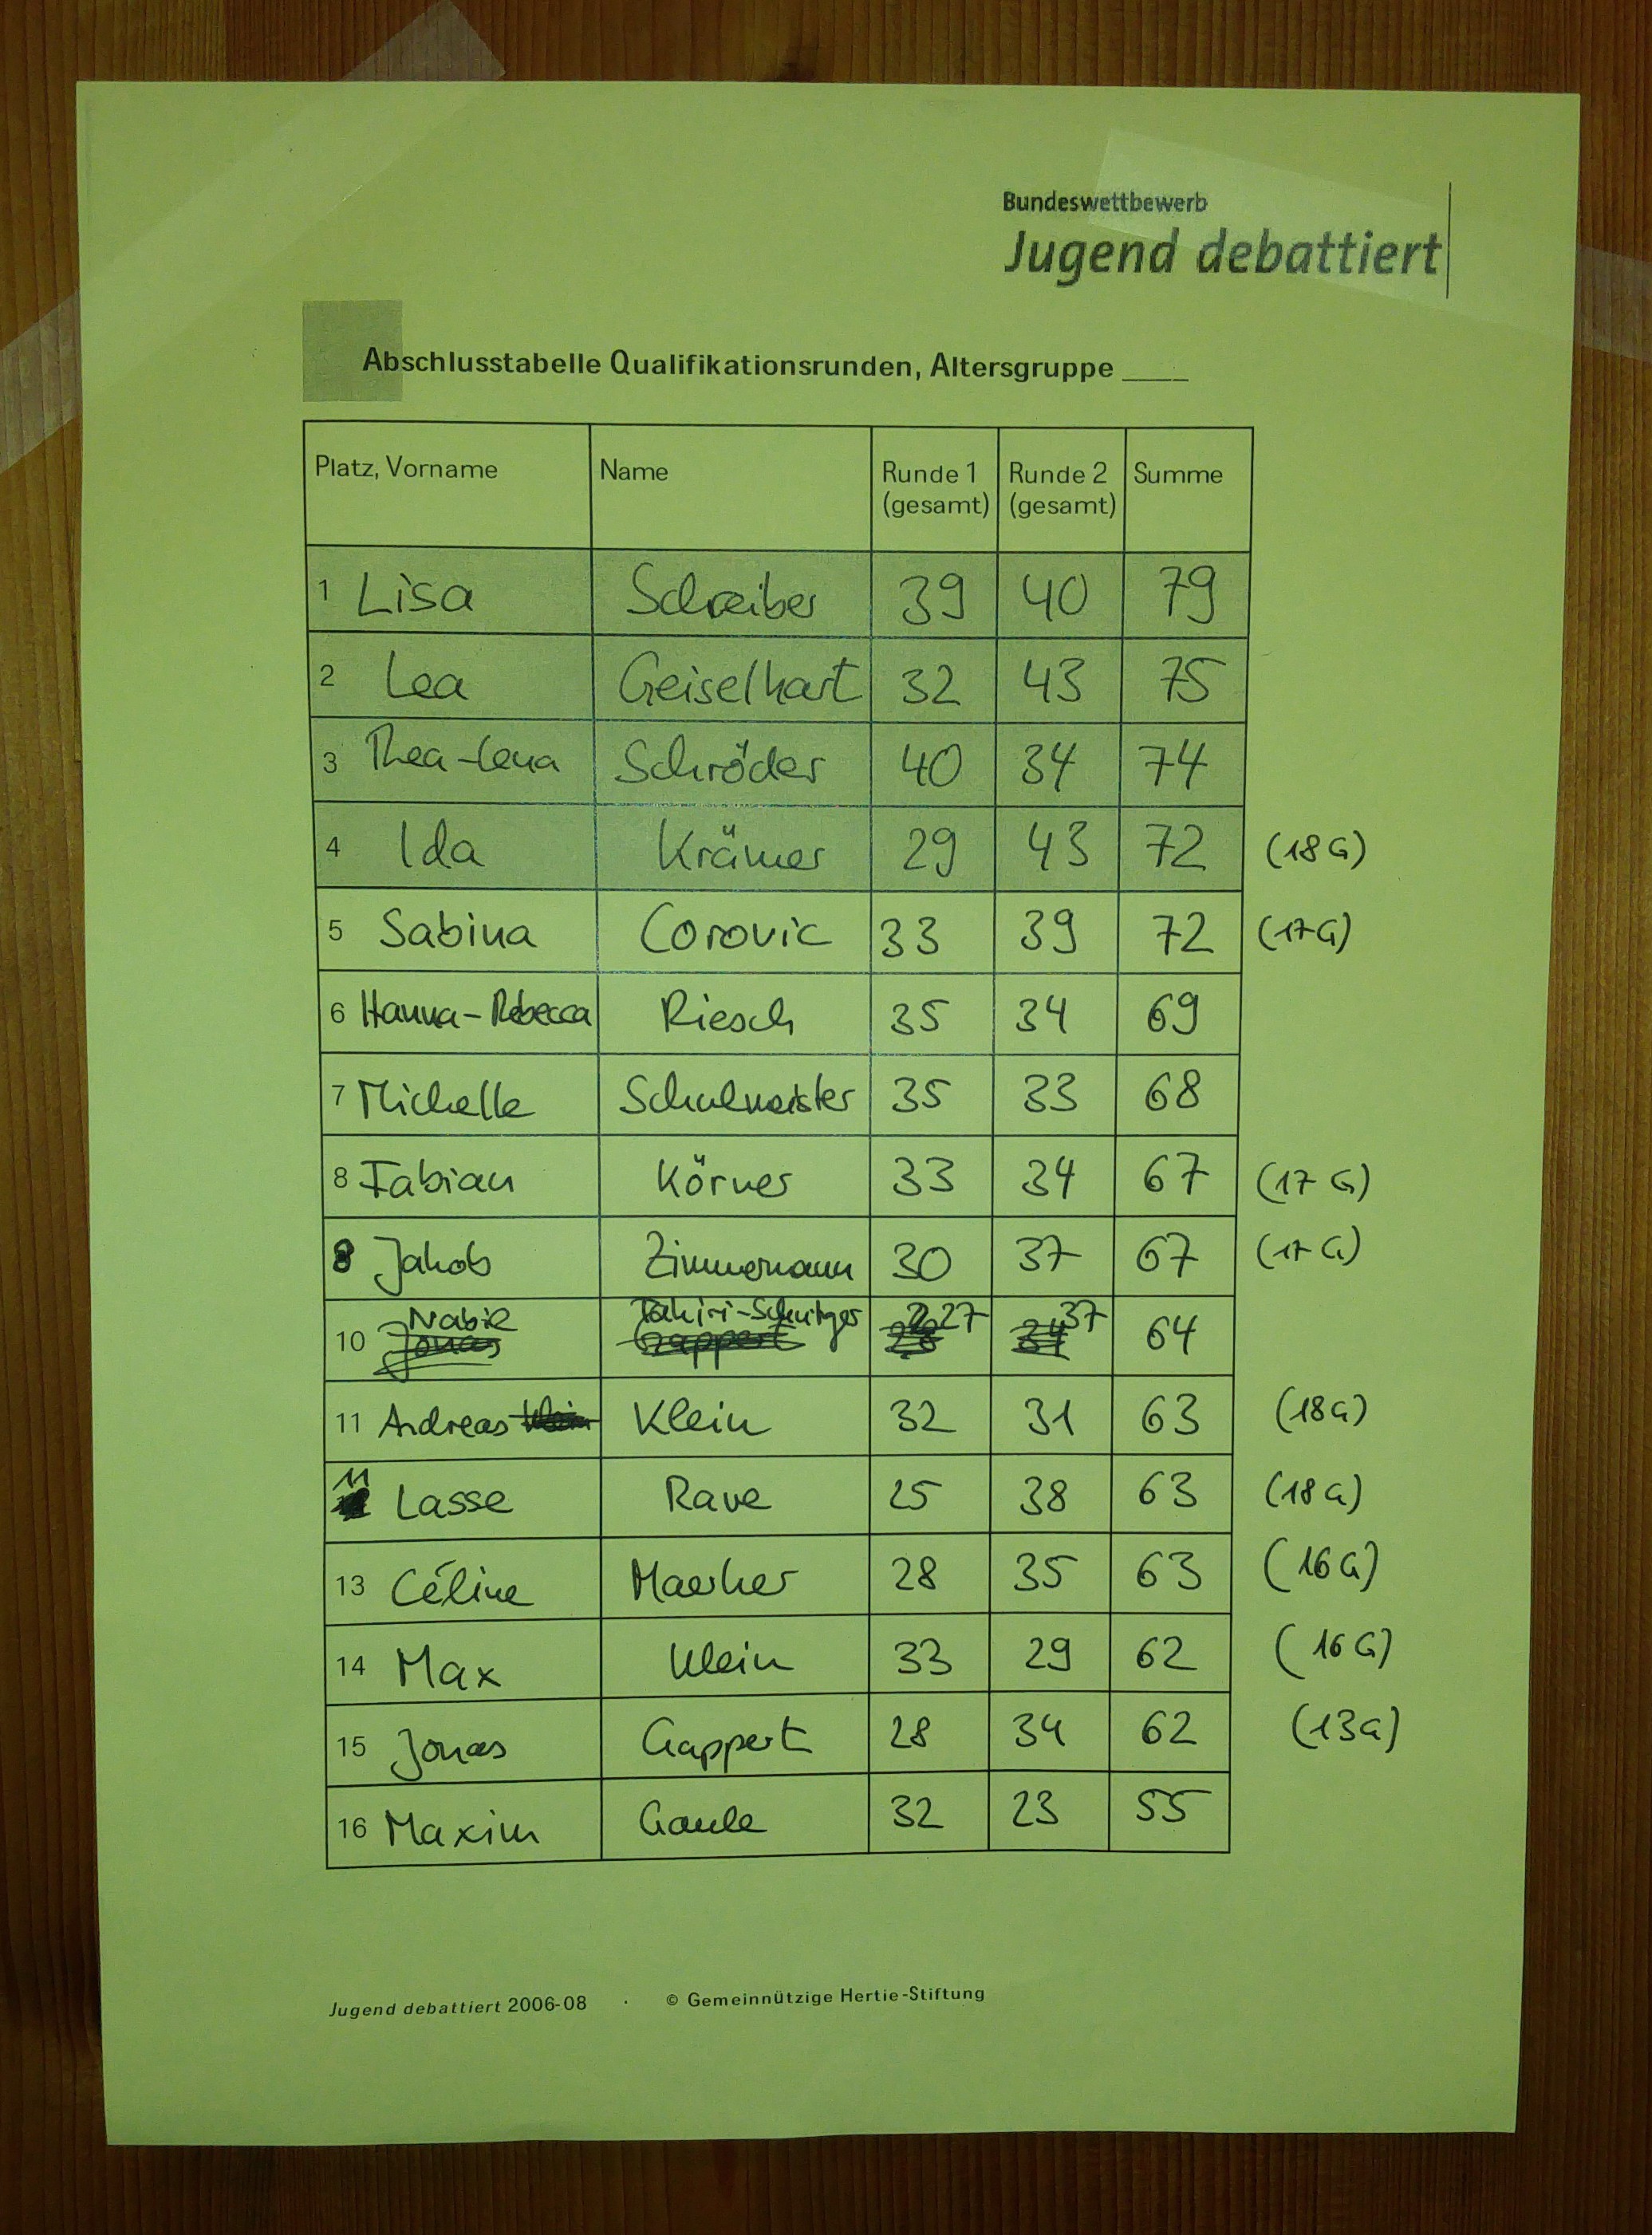 Bundeswettbewerb
Jugend debattiert
Abschlusstabelle Qualifikationsrunden, Altersgruppe ____
Platz, Vorname Name Runde 1 (gesamt) Runde 2 (gesamt) Summe
1 Lisa Schreiber 39 40 79
2 Lea Geiselhart 32 43 75
3 Thea-Lena Schröder 40 34 74
4 Ida Krämer 29 43 72 (18G)
5 Sabina Corovic 33 39 72 (17G)
6 Hanna-Rebecca Riesch 35 34 69
7 Michelle Schulmeister 35 33 68
8 Fabian Körner 33 34 67 (17 G)
8 Jakob Zimmermann 30 37 67 (17 G)
10 Nabil 27 37 64
11 Andreas Klein 32 31 63 (18G)
11 Lasse Rave 25 38 63 (18G)
13 Céline 28 35 63 (16G)
14 Max Klein 33 29 62 (16G)
15 Jonas Gappert 28 34 62 (13G)
16 Maxim Gaule 32 23 55
Jugend debattiert 2006-08 · © Gemeinnützige Hertie-Stiftung